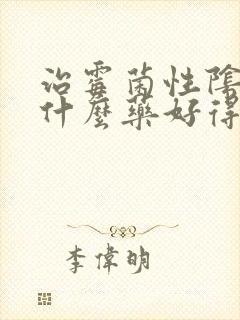 治霉菌性陰
什麼藥好得
李偉明